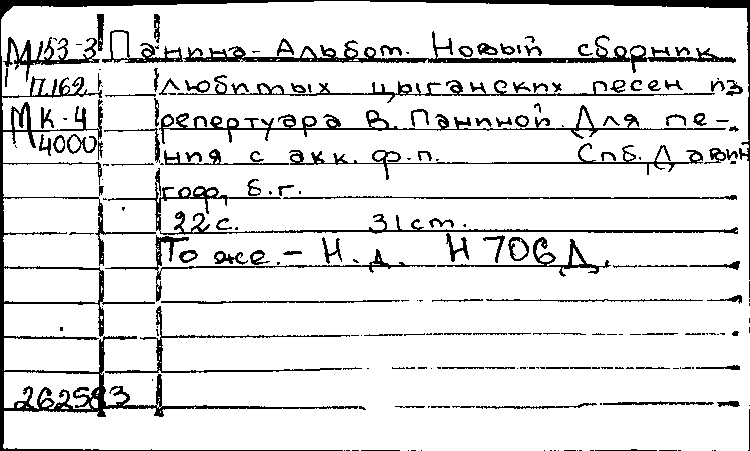 М153-3 Панина-Альбом. Новый сборник
П.162 любимых цыганских песен из
МК-4 репертуара В. Паниной. Для пе-
4000
ния с акк. ф.п. Спб., Давин
гоф, б.г.
22 с. 31 см.
То же. - Н.д. Н 706 Д.
262583